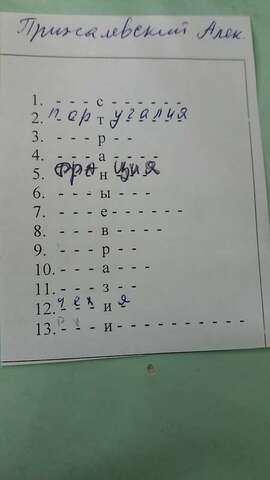 Прихалевский Алек
1. - - - с - - - - - - -
2. порт угалия
3. - - - р - -
4. - - - а - - - - -
5. Франция
6. - - - ы - - -
7. - - - е - - - - - - -
8. - - - в - - - -
9. - - - р - -
10. - - - а - - -
11. - - - з - -
12. чехия
13. - - - и - - - - - - - - - - -